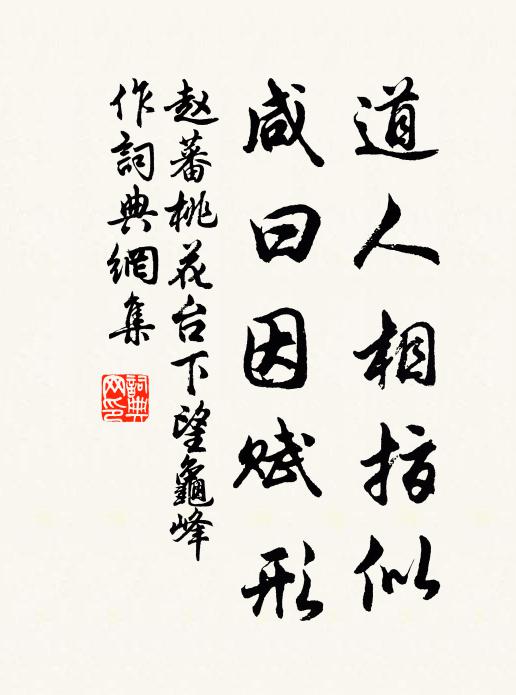 道人相指似
咸曰因赋形
赵蕃桃花台下望龜峰
作詞典網集
詞典网印